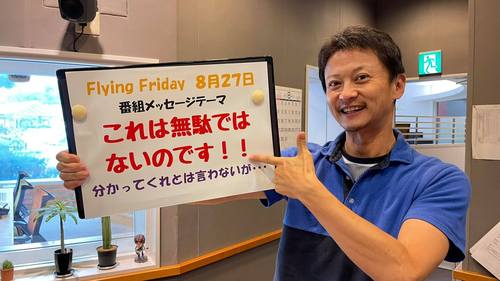 Flying Friday 8月27日
番組メッセージテーマ
これは無駄では
ないのです！！
分かってくれとは言わないが･･･